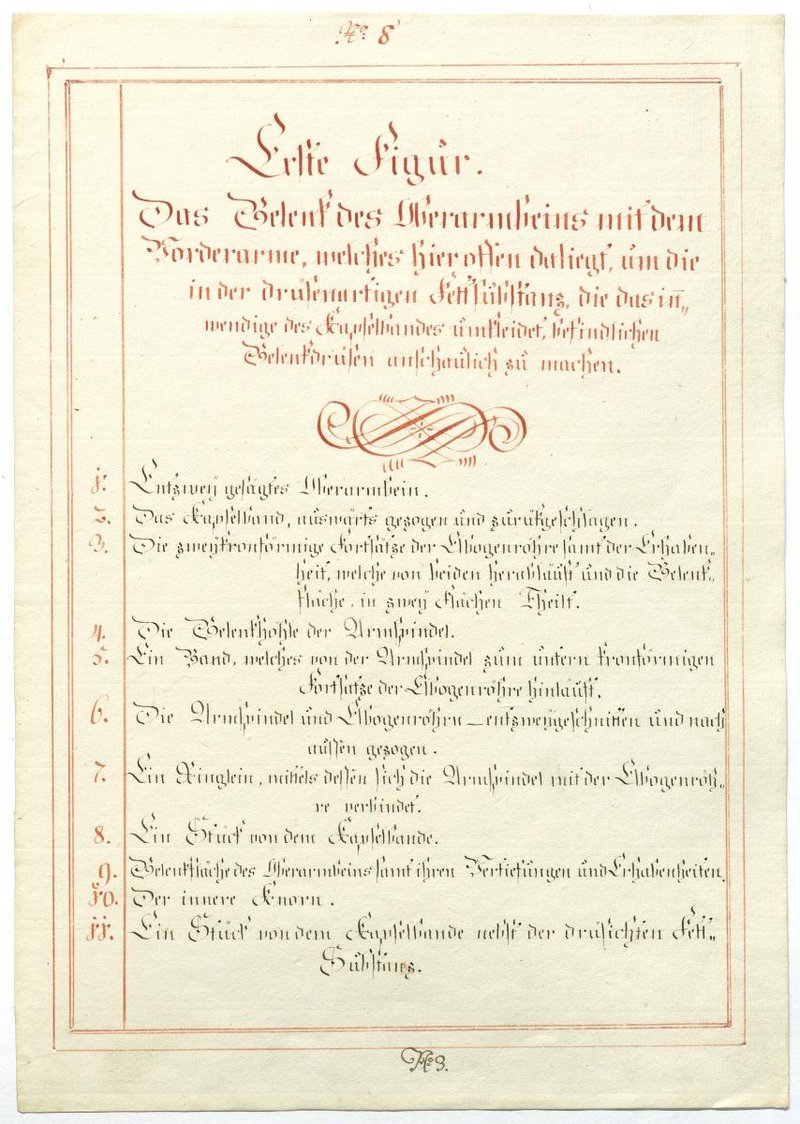 No. 8
Erste Figur.
Das Gelenk des Oberarmbeins mit dem
Vorderarme, welches hier offen daliegt, um die
in der drüsenartigen Fettsubstanz, die das in̅„
wendige des Kapselbandes umkleidet, befindlichen
Gelenkdrüsen anschaulich zu machen.
1. Entzwey gesägtes Oberarmbein.
2. Das Kapselband, auswärts gezogen und zurükgeschlagen.
3. Die zweykronförmige Fortsätze der Elbogenröhre samt der Erhaben„
heit, welche von beiden herabläuft und die Gelenk„
fläche, in zwey Flächen Theilt.
4. Die Gelenkhöhle der Armspindel.
5. Ein Band, welches von der Armspindel zum untern kronförmigen
Fortsatze der Elbogenröhre hinläuft.
6. Die Armspindel und Elbogenröhrn – entzweygeschnitten und nach
aussen gezogen.
7. Ein Ringlein, mittels dessen sich die Armspindel mit der Elbogenröh„
re verbindet.
8. Ein Stück von dem Kapselbande.
9. Gelenkfläche des Oberarmbeins samt ihren Vertiefungen und Erhabenheiten.
10. Der innere Knorn.
11. Ein Stück von dem Kapselbande nebst der drüsichten Fett„
Substanz.
No. 3.